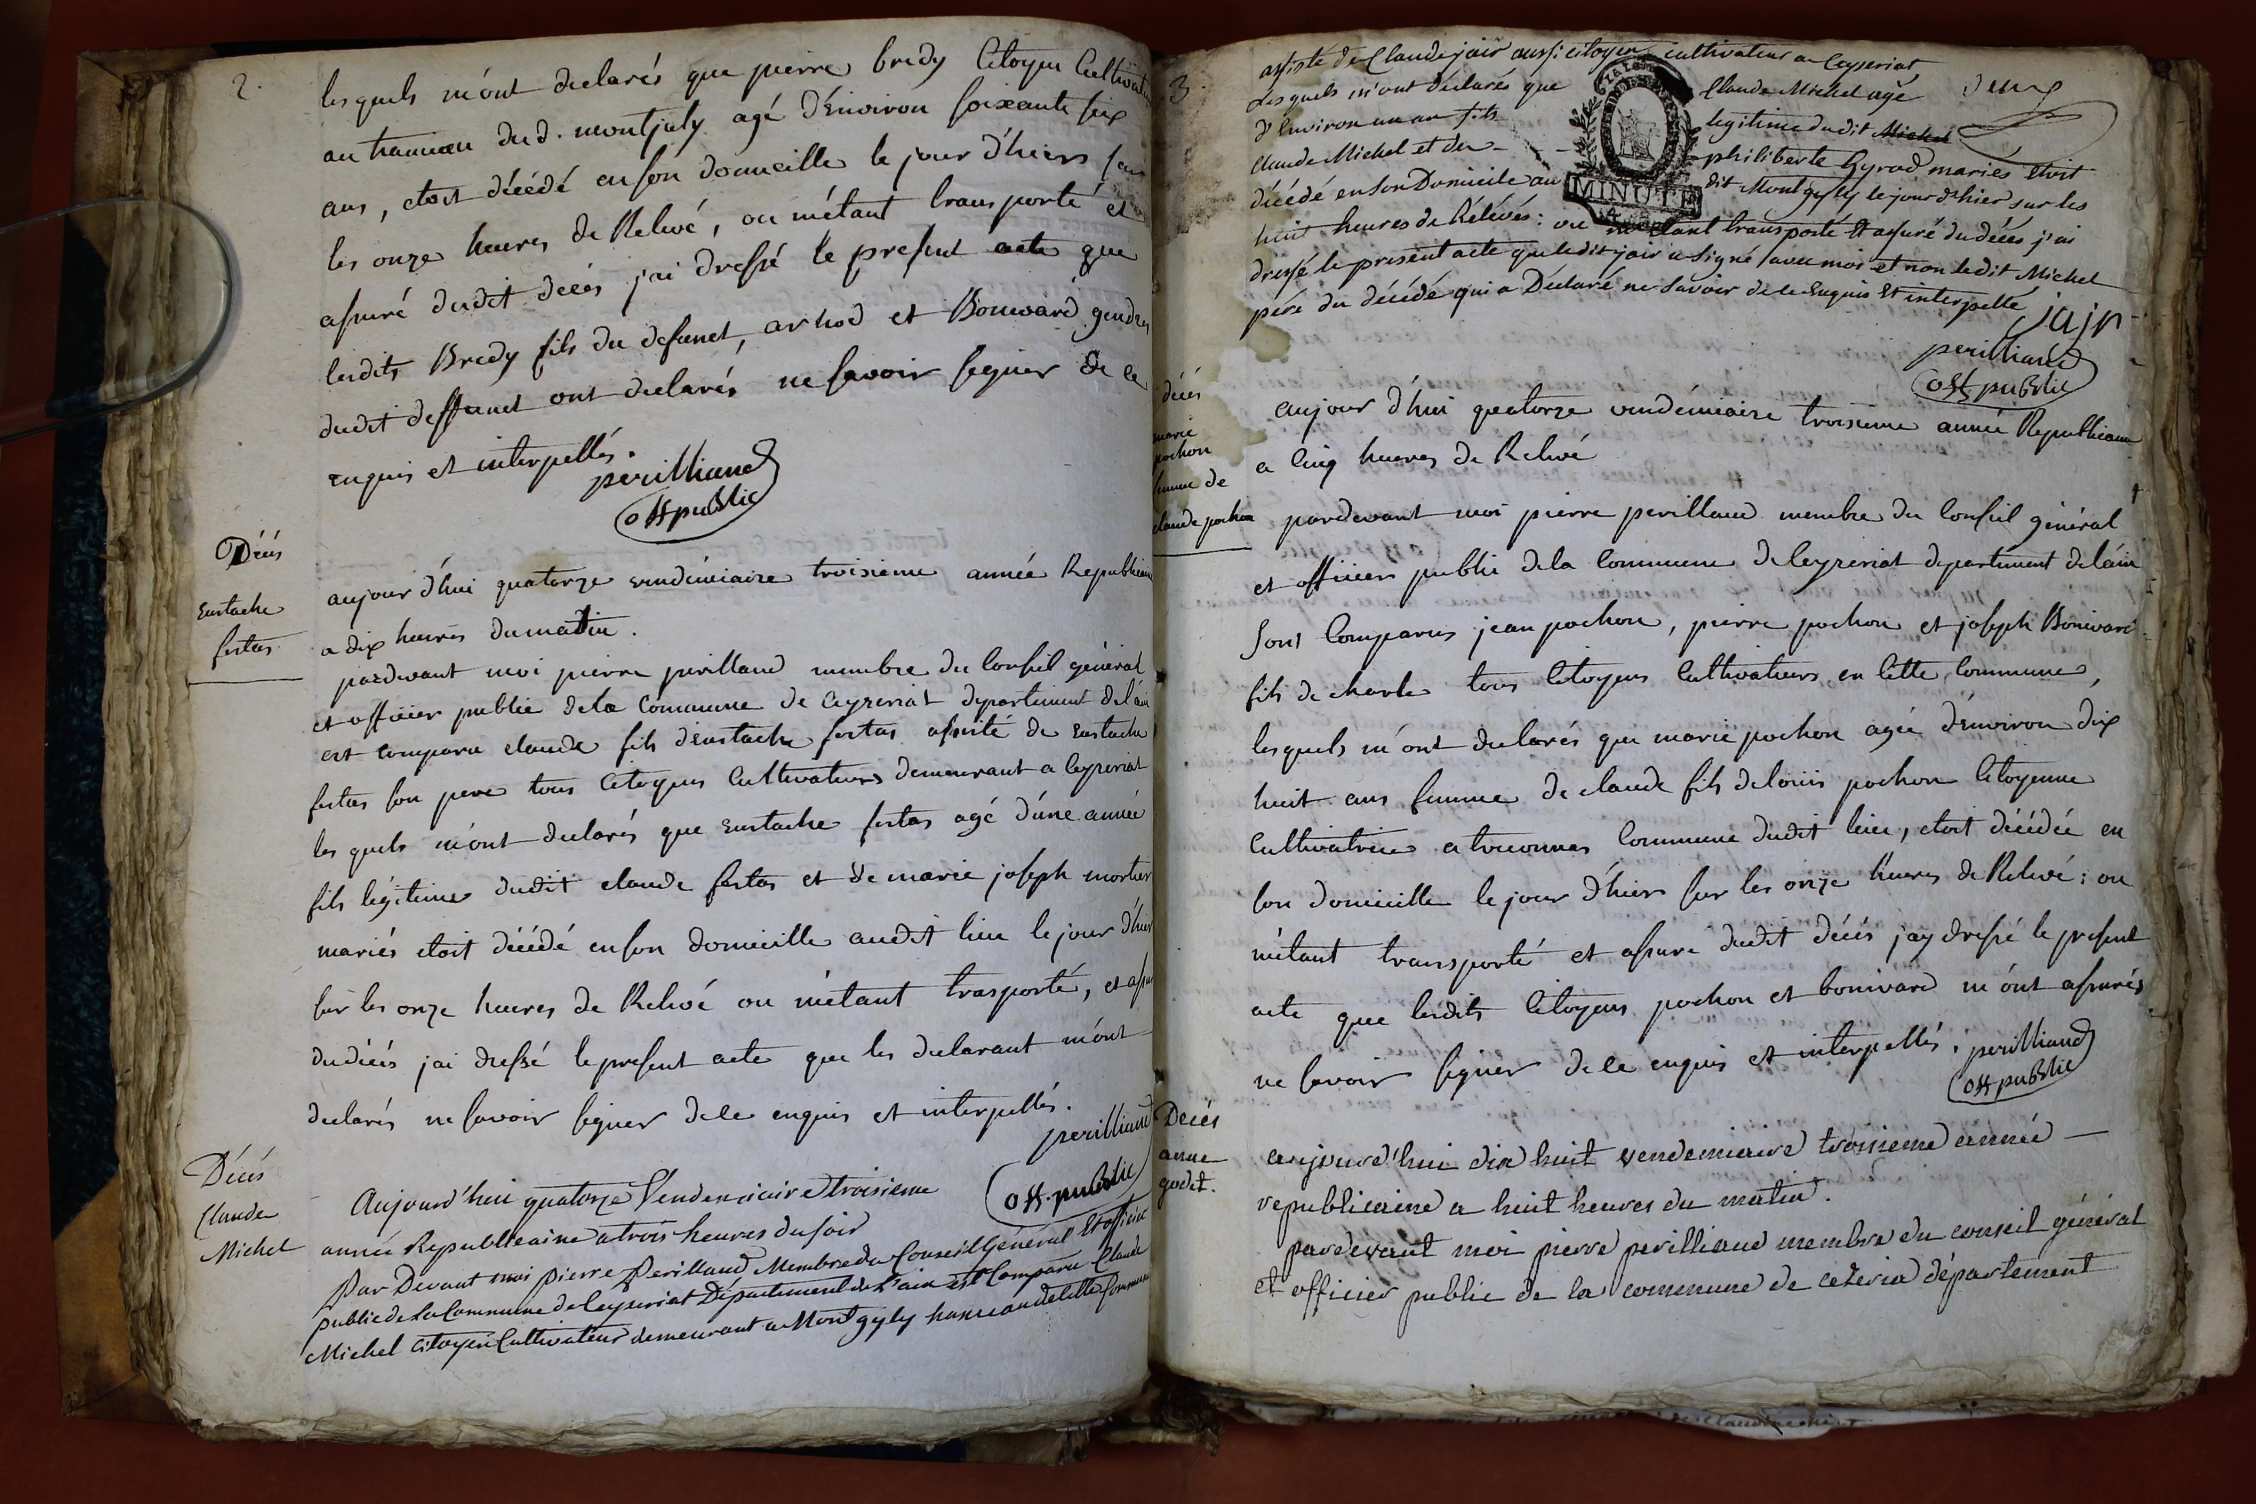 2.
lesquels m'ont declarés que pierre bredy Citoyen Cultivateur
au hameau dud. montjuly agé d'Environ soixante six
ans, etoit décédé en son domicille le jour d'hiers sur
les onze heures de Relevé, ou m'étant transporté et
assuré dudit decés j'ai dressé le present acte que
lesdits Bredy fils du defunct, arhod et Bonivard gendres
dudit deffunct ont declarés ne savoir signer de ce
enquis et interpellés.
perilliand
off public
Décés
Eustache
fertas
aujourd'hui quatorze vendémiaire troisieme année Republicaine
a dix heures du matin.
pardevant moi pierre perilland membre du Conseil général
et officier public de la Commune de Ceyzeriat departement de l'ain
est comparu claude fils d'Eustache fertas assisté de Eustache
fertas son pere tous Citoyens Cultivateurs demeurant a Ceyzeriat
les quels m'ont declarés que Eustache fertas agé d'une année
fils légitime dudit claude fertas et de marie joseph mortier
mariés etoit décédé en son domicille audit lieu le jour d'hier
sur les onze heures de Relevé ou m'étant trasporté, et assuré
du décés j'ai dressé le present acte que les declarant m'ont
declarés ne savoir signer de ce enquis et interpellés.
perilliand
off. public
Décés
Claude
Michel
Aujourd'hui quatorze Vendemiaire troisieme
année Republicaine a trois heures du soir
Par Devant moi pierre Perilland Membre du Conseil Général Et officier
public de la Commune de Ceyzeriat Département de l'ain est Comparu Claude
Michel citoyen Cultivateur demeurant a Montgyly hameau de cette Commune
3
assisté de Claude jair aussi citoyen cultivateur a Ceyseriat
Lesquels m'ont déclarés que Claude Michel agé
d'Environ un an fils légitime dudit Michel
Claude Michel et de philiberte Gyrod mariés etoit
décédé en son Domicile au dit Montgyly le jour d'hier sur les
huit heures de Rélévés: ou m'etant transporté Et assuré du décés j'ai
dressé le présent acte que ledit jair a signé avec moi et non ledit Michel
pére du décédé qui a Déclaré ne Savoir de ce Enquis Et interpellé
MINUTE
jajr
perilliand
off public
décés
marie
pochon
femme de
claude pochon
aujourd'hui quatorze vendémiaire troisieme année Republicaine
a Cinq heures de Relevé
pardevant moi pierre perilland membre du Conseil général
et officier public de la Commune de Ceyzeriat departement de l'ain
sont Comparus jean pochon, pierre pochon et joseph Bonivard
fils de charle tous Citoyens Cultivateurs en Cette Commune,
lesquels m'ont declarés que marie pochon agée d'Environ dix
huit ans femme de claude fils de louis pochon Citoyenne
Cultivatrice a Commune dudit lieu, etoit décédée en
son domicille le jour d'hiers sur les onze heures de Relevé; ou
m'étant transporté et assuré dudit décés jay dressé le present
acte que lesdits Citoyens pochon et bonivard m'ont assurés
ne savoir signer de ce enquis et interpellés. perilliand
off public
Decés
anne
godet.
aujourd'hui dix huit vendemiaire troisieme année
republicaine a huit heures du matin.
pardevant moi pierre perilliand membre du conseil général
et officier public de la commune de département